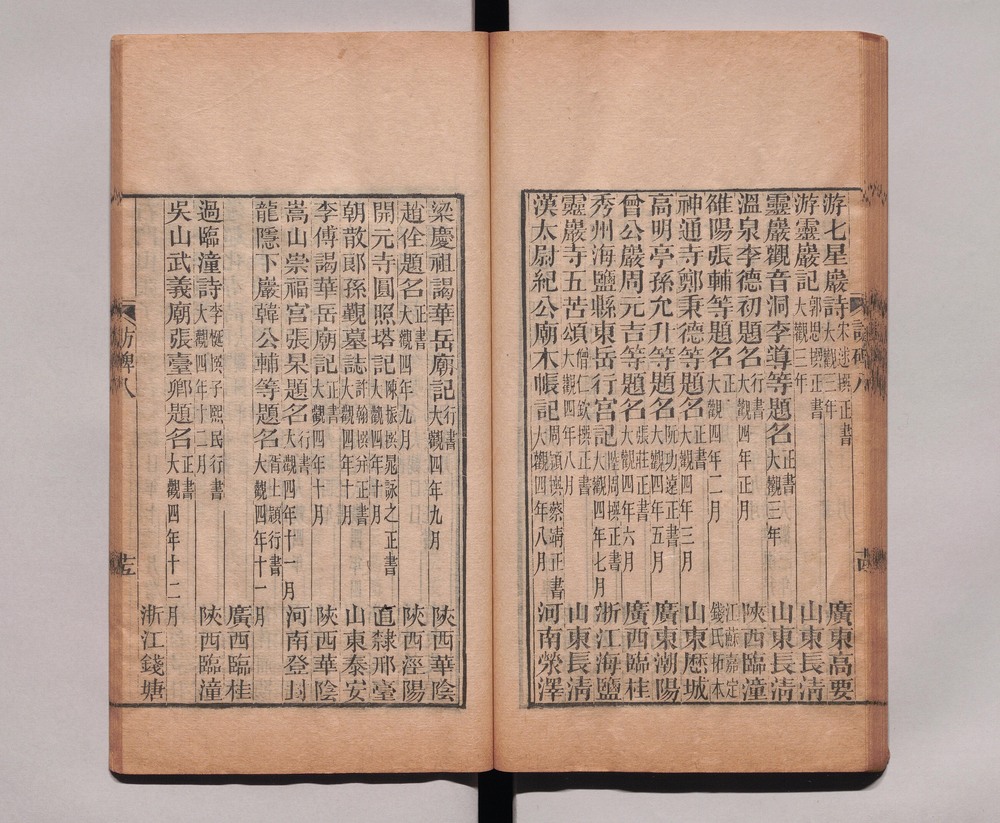 游七星巖詩宋述撰正書大觀三年 廣東高要
游靈巖記郭思撰正書大觀三年 山東長清
靈巖觀音洞李導等題名正書大觀三年 山東長清
溫泉李德初題名行書大觀四年正月 陝西臨潼
雒陽張輔等題名正書大觀四年二月 江蘇嘉定錢氏拓本
神通寺鄭秉德等題名正書大觀四年三月 山東歷城
高明亭孫允升等題名阮功遠正書大觀四年五月 廣東潮陽
曾公巖周元吉等題名張莊正書大觀四年六月 廣西臨桂
秀州海鹽縣東岳行宮記陸周撰正書大觀四年七月 浙江海鹽
靈巖寺五苦頌僧仁欽撰正書大觀四年八月 山東長清
漢太尉紀公廟木帳記周穎撰蔡靖正書大觀四年八月 河南滎澤
訪碑八
梁慶祖謁華岳廟記行書大觀四年九月 陝西華陰
趙佺題名正書大觀四年九月 陝西涇陽
開元寺圓照塔記陳振撰晁詠之正書大觀四年十月 直隸邢臺
朝散郎孫覿墓誌許翰撰并正書大觀四年十月 山東泰安
李傅謁華岳廟記正書大觀四年十月 陝西華陰
嵩山崇福宮張杲題名行書大觀四年十一月 河南登封
龍隱下巖韓公輔等題名胥士穎行書大觀四年十一月 廣西臨桂
過臨潼詩李㑨撰子熙民行書大觀四年十二月 陝西臨潼
吳山武義廟張臺卿題名正書大觀四年十二月 浙江錢塘
訪碑八